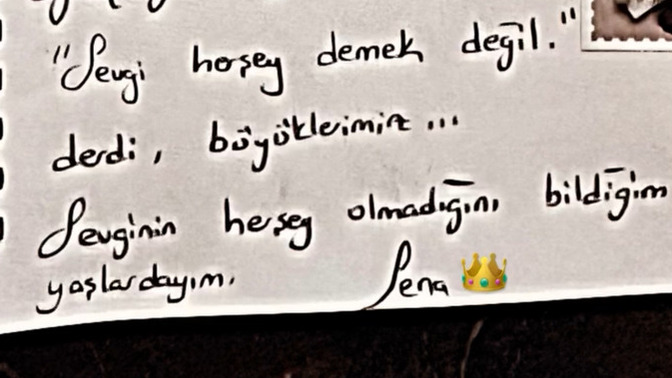 "Sevgi herşey demek değil."
derdi, büyüklerimiz...
Sevginin herşey olmadığını bildiğim
yaşlardayım. Sena